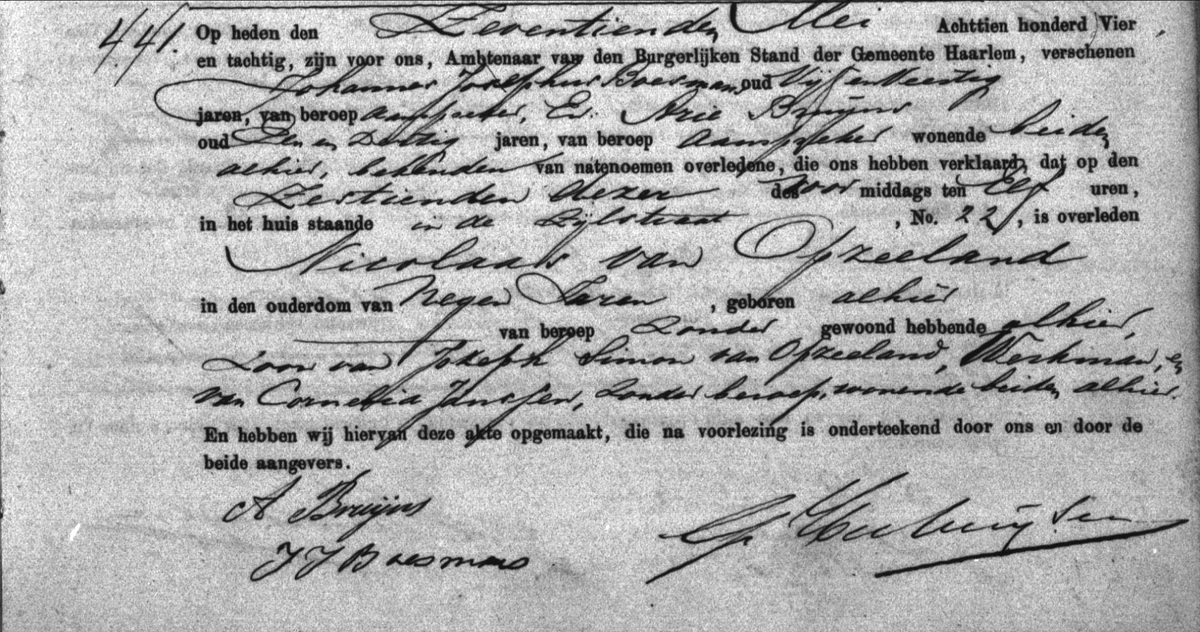 441. Op heden den Zeventienden Mei Achttien honderd Vier
en tachtig, zijn voor ons, Ambtenaar van den Burgerlijken Stand der Gemeente Haarlem, verschenen
Johannes Josephus Boesmans, oud Vijf en Veertig
jaren, van beroep Aanspreker, En Arie Bruijns
oud Een en Dertig jaren, van beroep Aanspreker wonende beiden
alhier, bekenden van natenoemen overledene, die ons hebben verklaard, dat op den
Zestienden dezer des Voor middags ten Elf uren,
in het huis staande in de Zijlstraat , No. 22, is overleden
Nicolaas van Opzeeland
in den ouderdom van Negen Jaren , geboren alhier
van beroep Zonder gewoond hebbende alhier,
Zoon van Jozeph Simon van Opzeeland, Werkman, en
van Cornelia Janssen, Zonder beroep, wonende beiden alhier.
En hebben wij hiervan deze akte opgemaakt, die na voorlezing is onderteekend door ons en door de
beide aangevers.
A Bruijns
J J Boesmans